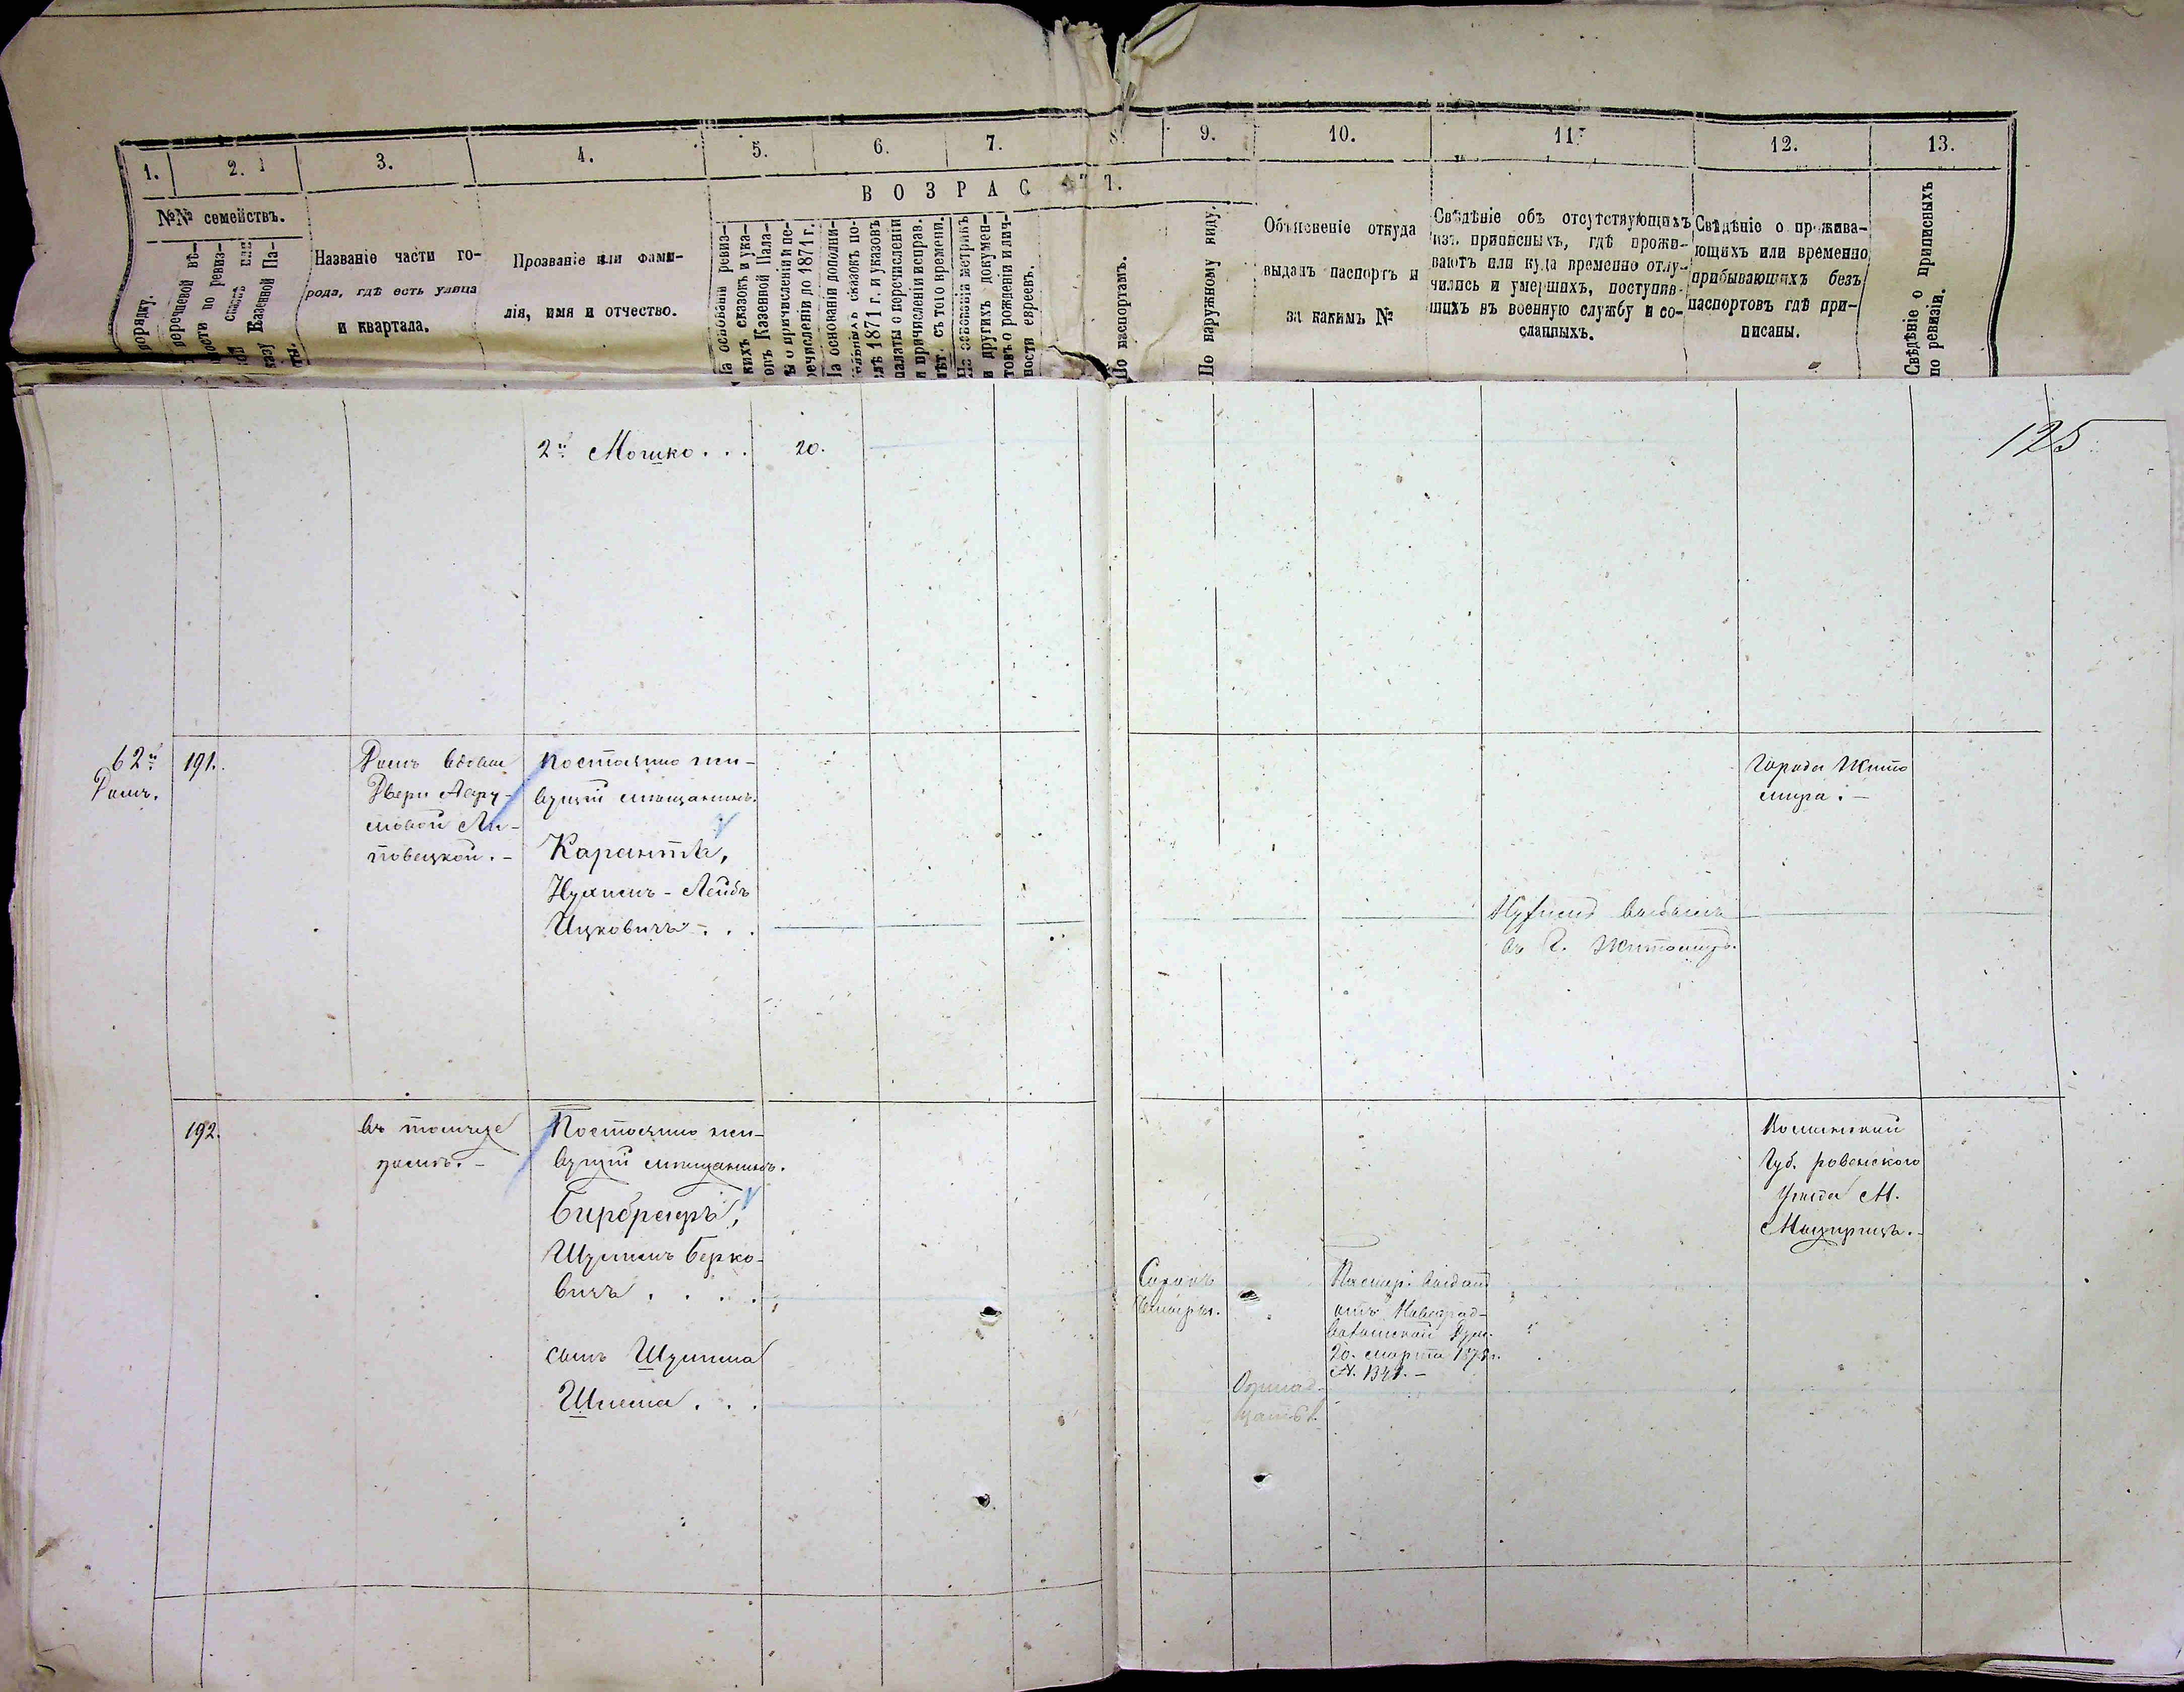 1.
2.
3.
4.
5.
6.
7.
8.
9.
10.
11.
12.
13.
ВОЗРАСТЪ.
№№ семействъ.
порядку.
перечневой вѣ-
ности по ревиз-
казу Казенной Па-
ты.
Названіе части го-
рода, гдѣ есть улица
и квартала.
Прозваніе или фами-
лія, имя и отчество.
На основаніи ревиз-
скихъ сказокъ и ука-
зовъ Казенной Пала-
ты о причисленіи и пе-
речисленіи до 1871 г.
На основаніи дополни-
тельныхъ сказокъ по-
слѣ 1871 г. и указовъ
палаты о перечисленіи
и причисленіи исправ.
лѣт. съ того времени.
На основаніи метрикъ
и другихъ докумен-
товъ о рожденіи и лич-
ности евреевъ.
По паспортамъ.
По наружному виду.
Объясненіе откуда
выданъ паспортъ и
за какимъ №
Свѣдѣніе объ отсутствующихъ
изъ приписныхъ, гдѣ прожи-
ваютъ или куда временно отлу-
чились и умершихъ, поступив-
шихъ въ военную службу и со-
сланныхъ.
Свѣдѣніе о прожива-
ющихъ или временно
прибывающихъ безъ
паспортовъ гдѣ при-
писаны.
Свѣдѣніе о приписныхъ
по ревизіи.
125
2й Мошко . . . 20.
62й
Домъ.
191.
Домъ вдовы
Двери Авру-
мовой Ли-
повецкой. -
Постоянно жи-
вущій мѣщанинъ.
Карантъ,
Нухимъ-Лейбъ
Ицковичъ - . .
Нухимъ выбылъ
въ г. Житомиръ.
Города Жито
мира. -
192.
въ томъ же
домѣ. -
Постоянно жи-
вущій мѣщанинъ.
Бирбраеръ,
Шулимъ Берко-
вичъ . . . .
сынъ Шулима
Шлема . . .
Сорокъ
четыре.
Одинад-
цать л.
Паспор. выданъ
отъ Новоград-
волынской Дум.
20. марта 187
№. 1341. -
Волынской
Губ. ровенского
уѣзда М.
Межиричъ. -